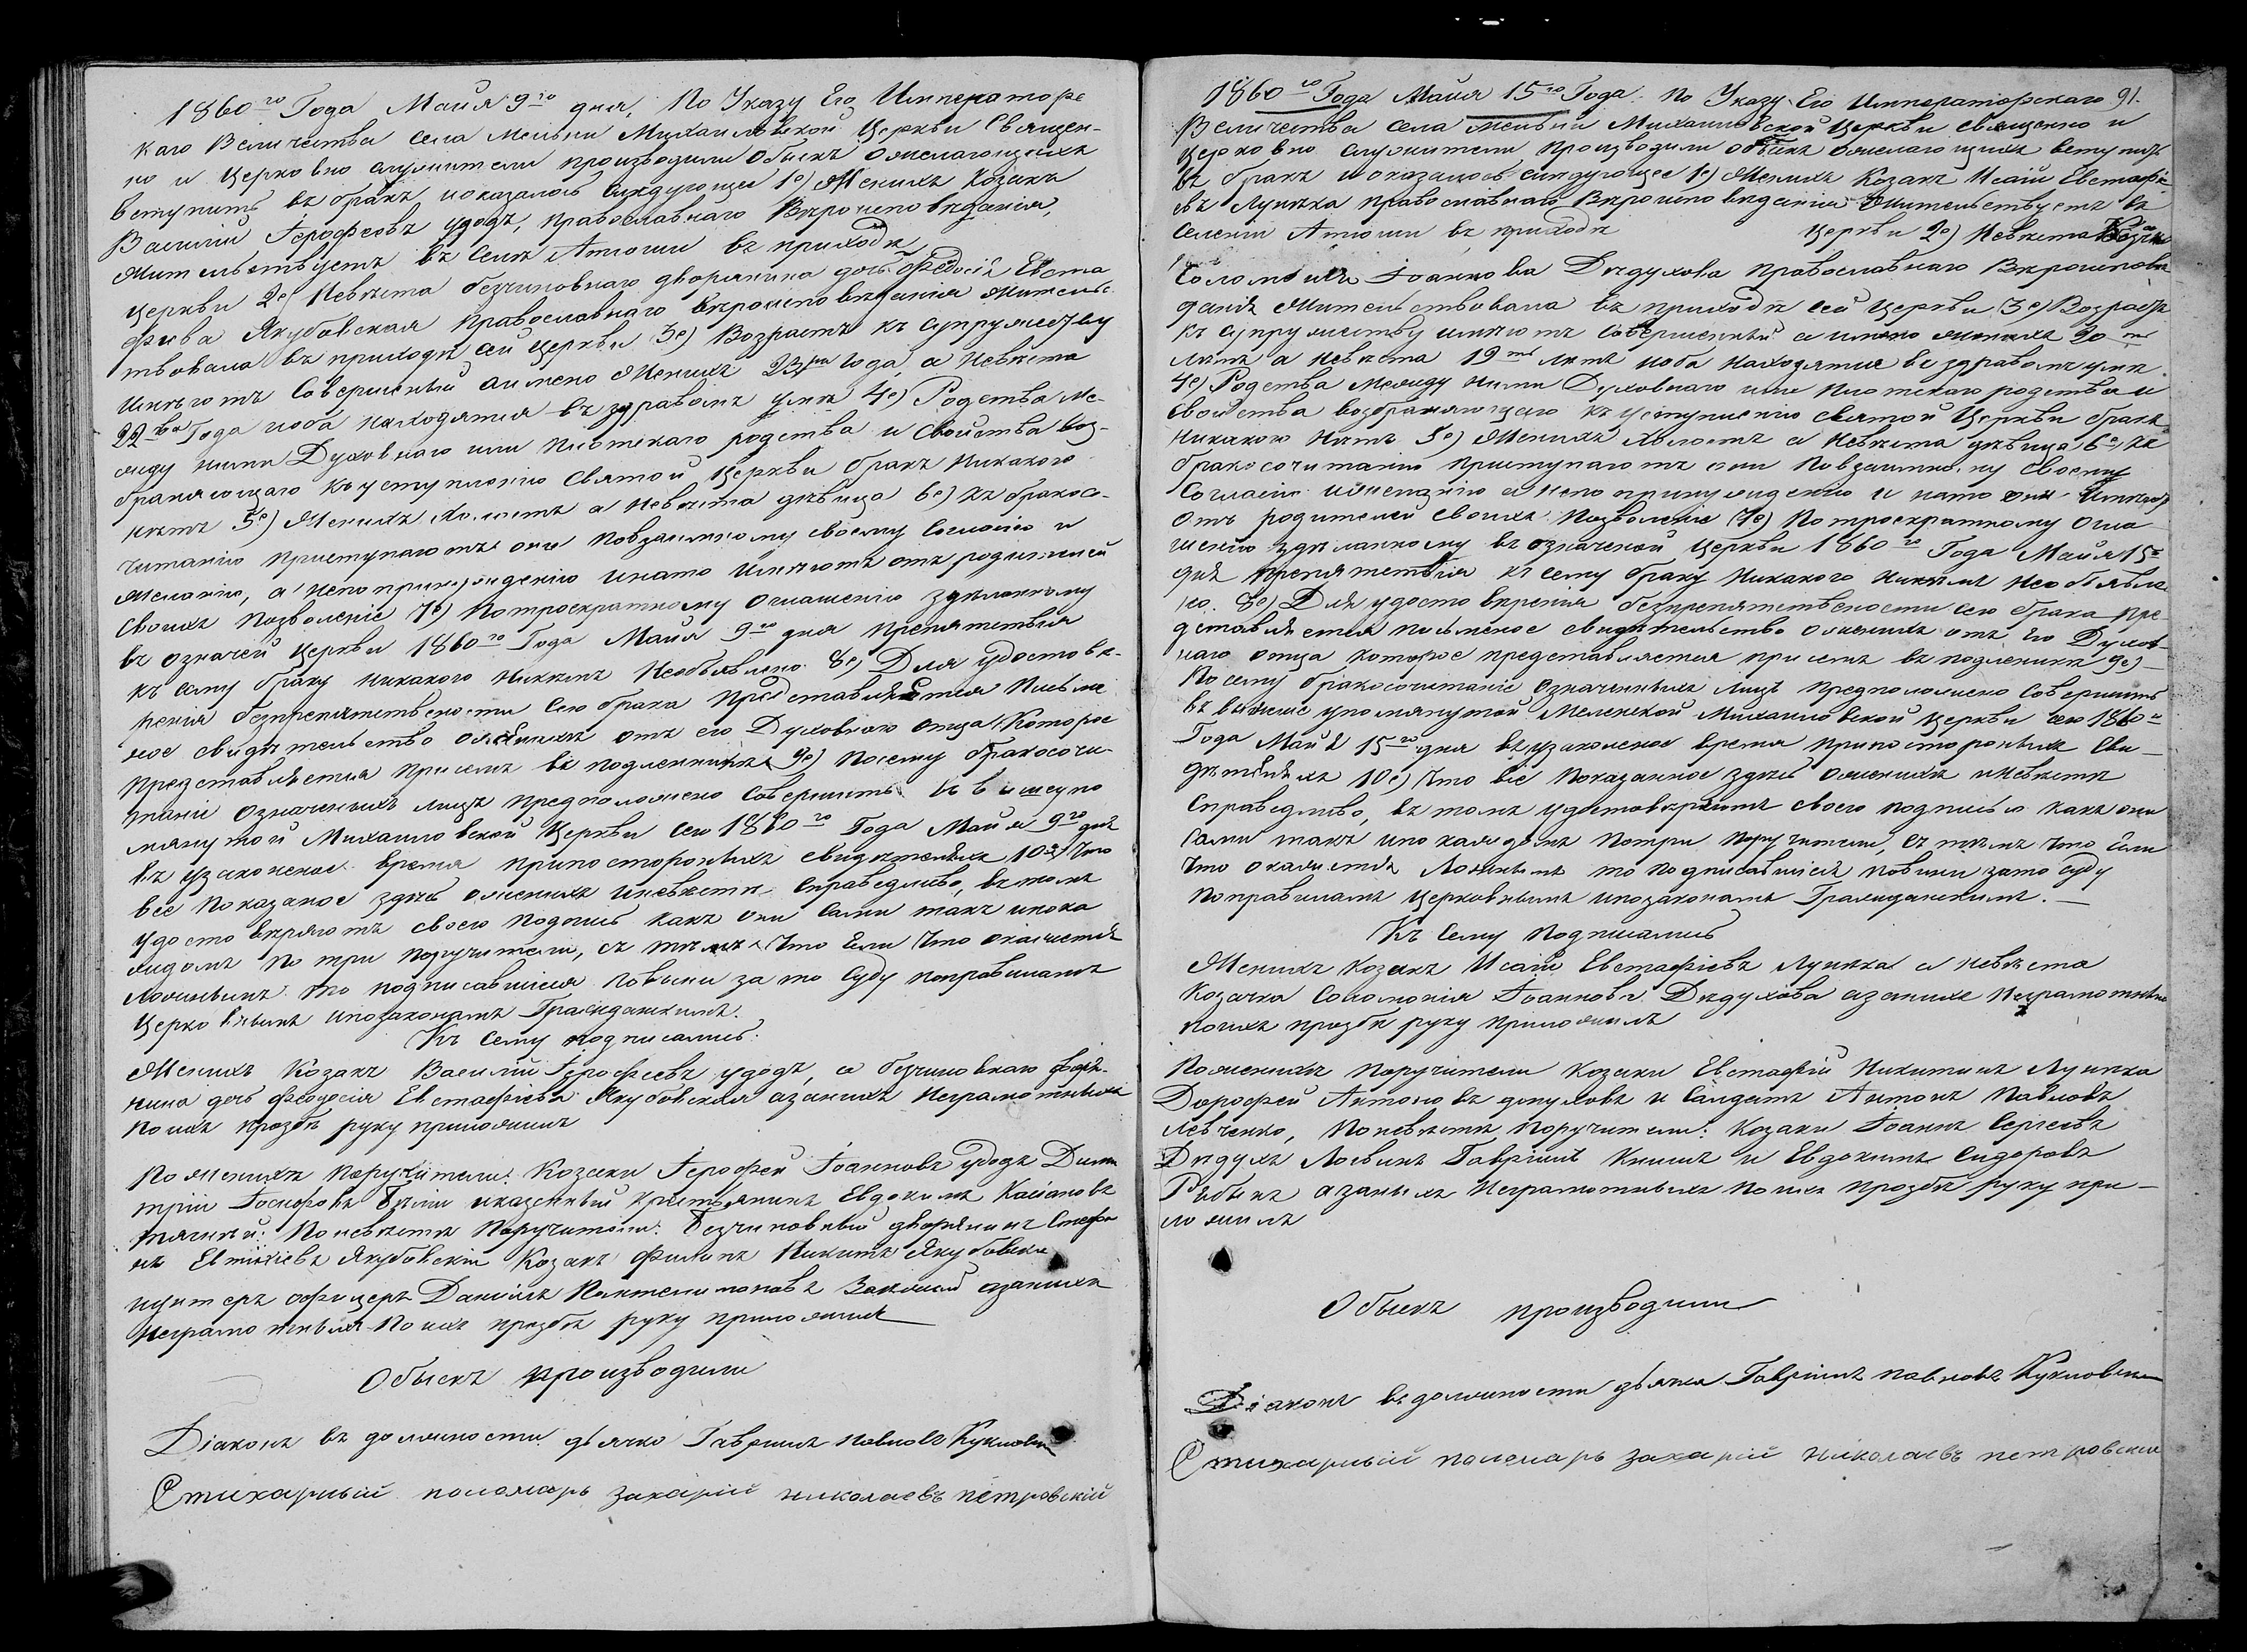 1860го Года Майя 9го дня, По Указу Его Императорс
каго Величества села Мельни Михаиловской Церкви Священ-
но и церковно служители производили обыскъ о желающихъ
вступить въ бракъ и оказалось следующее 1е) Женихъ Козакъ
Василій Герофеевъ удодъ, православнаго Вѣроисповѣданія,
жительствуетъ въ селѣ Атюши въ приходѣ
церкви 2е) Невѣста безчиновнаго дворянина дочь Федосія Евста
фиева Якубовская православнаго вѣроисповѣданія жительс
твовала въ приходѣ сей церкви 3е) Возрастъ къ супружеству
имѣютъ совершенный а имено Женихъ 23 года, а невѣста
22 Года и оба находятся въ здравомъ умѣ 4е) Родства ме-
жду ними Духовнаго или плотскаго родства и свойства воз-
браняющаго къ уступленію Святой церкви бракъ никакого
нѣтъ 5е) Женихъ холостъ а невѣста дѣвица 6е) Къ бракосо-
читанію приступаютъ они повзаимному своему согласію и
желанію, а непопринужденію и нато имѣютъ отъ родителей
своихъ позволеніе 7е) Потроекратному оглашенію здѣланному
въ означей церкви 1860го Года Майя 9го дня препятствія
къ сему браку никакого никемъ необъявлено 8е) Для удостовѣ-
ренія безпрепятствености сего брака представляется письме
ное свидѣтельство о женихѣ отъ его Духовнаго отца, которое
представляется присемъ въ подленникѣ 9е) Посему бракосочи-
таніе означеныхъ лицъ предположено совершить въ вишеупо
мянутой Михаиловской церкви сего 1860го Года Майя 9го дня
въ узаконеное время припостороннихъ свидѣтеляхъ 10е) Что
все показаное здѣсь о женихѣ и невѣстѣ справедливо, въ томъ
удостовѣряютъ своею подпись какъ они сами такъ и пока
ждомъ по три поручители, съ тѣмъ что если что окажется
ложнымъ то подписавшіеся повины за то суду поправиламъ
церковнымъ и позаконамъ Гражданскимъ.
Къ сему подписались:
Женихъ Козакъ Василій Герофеевъ удодъ, а безчиновнаго дворя-
нина дочь Феодосія Евстафіева Якубовская а заниxъ неграмотныхъ
по ихъ прозбѣ руку приложилъ
По женихѣ поручители: Козаки Герофей Іоанновъ удодъ Дими
трій Іосифовъ и казенный крестянинъ Евдокимъ Касіановъ
По невѣстѣ поручители: безчиновный дворянинъ Стефа
нъ Якубовскій Козакъ Филипъ Никитъ Якубовски
ицитеръ офицеръ Даніилъ Пантелимоновъ а заниxъ
неграмотныхъ по ихъ прозбѣ руку приложилъ
Обыскъ производили
Діаконъ въ должности дьячка Гавриилъ Павловъ Кукловски
Стихарный пономарь Захарій николаевъ петровскій
91.
1860го Года Майя 15го Года. По Указу Его Императорскаго
Величества села Мельни Михаиловской Церкви священно и
церковно служители производили обыскъ о желающихъ вступить
въ бракъ и оказалось следующее 1е) Женихъ Козакъ Исаій Евстафі
евъ Лунька православнаго Вѣроисповѣданія жительствуетъ въ
селеніи Атюши въ приходѣ церкви 2е) Невѣста Козачка
Соломонія Іоаннова Дѣдухова православнаго Вѣроисповѣ
данія жительствовала въ приходѣ сей церкви 3е) Возрастъ
къ супружеству имѣютъ совершенный а имено женихъ 20
лѣтъ а невѣста 19ть лѣтъ и оба находятся въ здравомъ умѣ.
4е) Родства между ними Духовнаго или плотскаго родства и
свойства возбраняющаго къ уступленію святой церкви бракъ
никакого нѣтъ 5е) Женихъ холостъ а невѣста дѣвица 6е) Къ
бракосочитанію приступаютъ они повзаимному своему
согласію и желанію а непопринужденію и нато они имѣютъ
отъ родителей своихъ позволеніе 7е) Потроекратному огла
шенію здѣланному въ означеной церкви 1860го Года Майя 15го
дня препятствія къ сему браку никакого никемъ необъявле
но. 8е) Для удостовѣренія безпрепятственности сего брака пре
дставляется письменое свидѣтельство о женихѣ отъ его Духов-
наго отца которое представляется присемъ въ подленникѣ 9е)
Посему бракосочитаніе означенныхъ лицъ предположено совершить
въ вышеупомянутой Меленской Михаиловской церкви сего 1860го
Года Майя 15го дня въ узаконеное время припостороннихъ сви-
дѣтеляхъ 10е) Что все показанное здѣсь о женихѣ и невѣстѣ
справедливо, въ томъ удостовѣряютъ своею подписью какъ они
сами такъ и по каждомъ по три поручители, съ тѣмъ что если
что окажется ложнымъ то подписавшіеся повины за то суду
поправиламъ церковнымъ и позаконамъ Гражданскимъ.
Къ сему подписались
Женихъ Козакъ Исаій Евстафіевъ Лунька а невѣста
Козачка Соломонія Іоаннова Дѣдухова а заниxъ неграмотныхъ
поихъ прозбѣ руку приложилъ
По женихѣ поручители Козаки Евстафій Никитинъ Лунька
Дорофей Антоновъ и Салдатъ Антонъ Павловъ
Левченко, По невѣстѣ поручители: Козаки Іоаннъ Сергеевъ
Дѣдухъ Гавріилъ Книшъ и Евдокимъ Сидоровъ
Рыбынъ а заныхъ неграмотныхъ по ихъ прозбѣ руку при-
ложилъ
Обыскъ производили
Діаконъ въ должности дьячка Гавріилъ павловъ Кукловски
Стихарный пономарь захарій николаевъ петровски